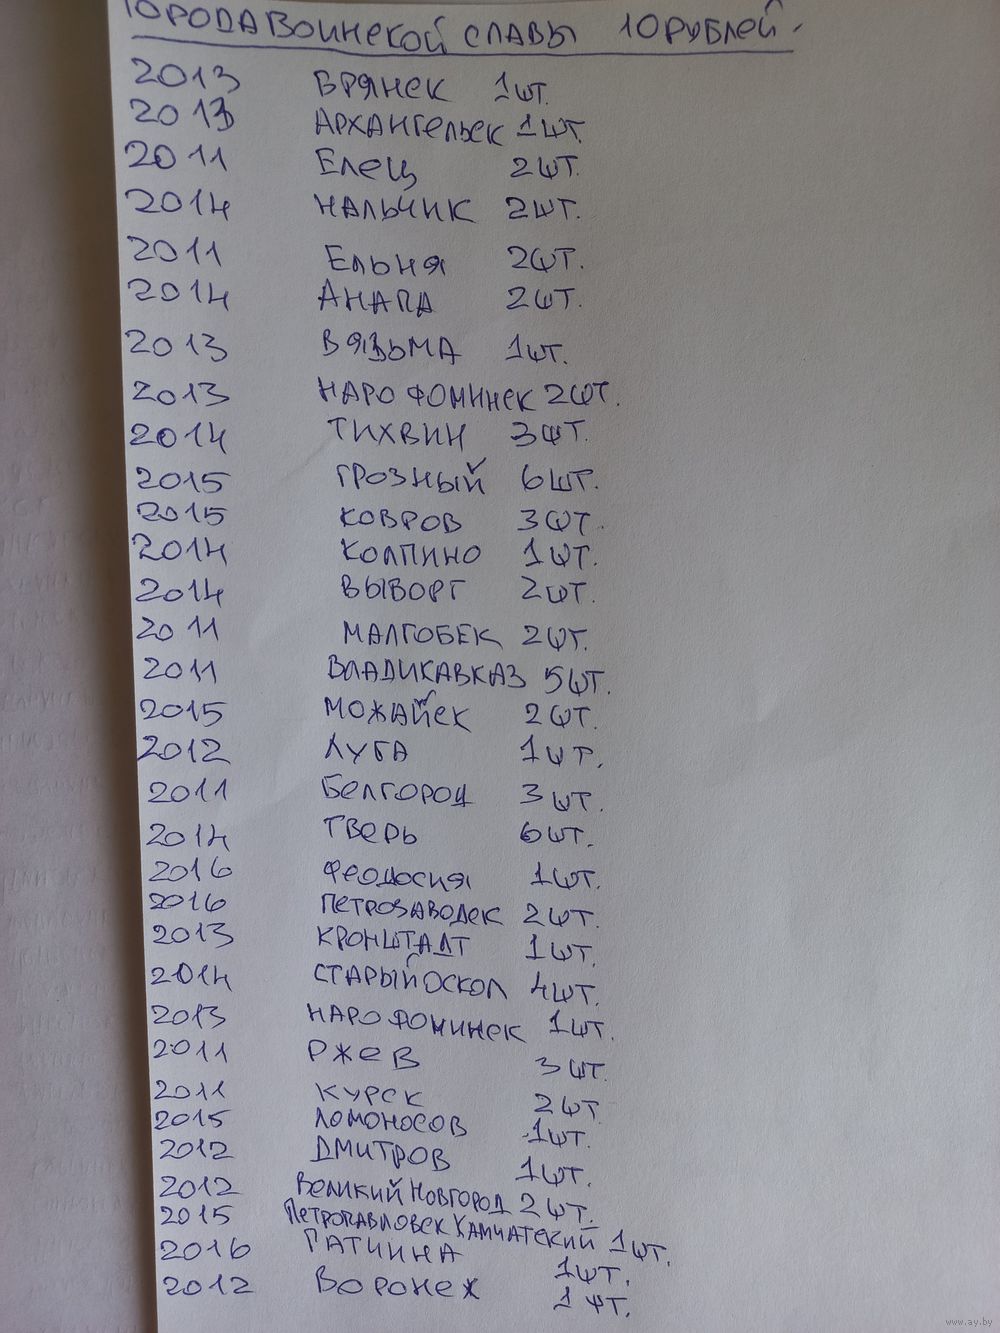 ГОРОДА ВОИНСКОЙ СЛАВЫ 10 РУБЛЕЙ.
2013 БРЯНСК 1шт.
2013 АРХАНГЕЛЬСК 1шт.
2011 ЕЛЕЦ 2шт.
2014 НАЛЬЧИК 2шт.
2011 ЕЛЬНЯ 2шт.
2014 АНАПА 2шт.
2013 ВЯЗЬМА 1шт.
2013 НАРО ФОМИНСК 2шт.
2014 ТИХВИН 3шт.
2015 ГРОЗНЫЙ 6шт.
2015 КОВРОВ 3шт.
2014 КОЛПИНО 1шт.
2014 ВЫБОРГ 2шт.
2011 МАЛГОБЕК 2шт.
2011 ВЛАДИКАВКАЗ 5шт.
2015 МОЖАЙСК 2шт.
2012 ЛУГА 1шт.
2011 БЕЛГОРОД 3шт.
2014 ТВЕРЬ 6шт.
2016 ФЕОДОСИЯ 1шт.
2016 ПЕТРОЗАВОДСК 2шт.
2013 КРОНШТАДТ 1шт.
2014 СТАРЫЙ ОСКОЛ 4шт.
2013 НАРО ФОМИНСК 1шт.
2011 РЖЕВ 3шт.
2011 КУРСК 2шт
2015 ЛОМОНОСОВ 1шт.
2012 ДМИТРОВ 1шт.
2012 ВЕЛИКИЙ НОВГОРОД 2шт.
2015 ПЕТРОПАВЛОВСК КАМЧАТСКИЙ 1шт.
2016 ГАТЧИНА 1шт.
2012 ВОРОНЕЖ 1шт.
www.ay.by